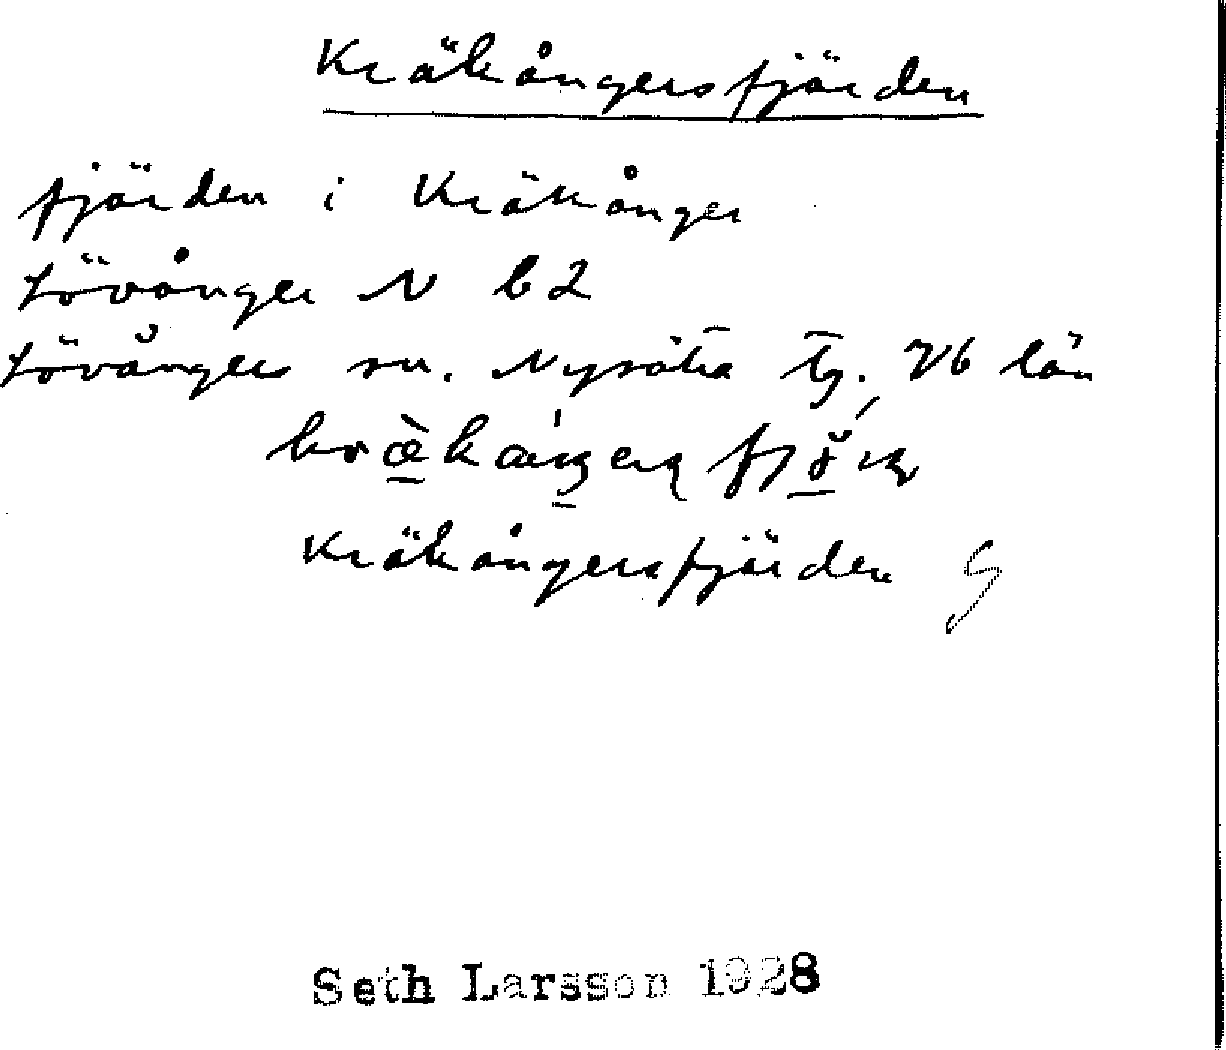 Kräkångersfjärden
fjärden i Kräkånger
Lövånger N b2
Lövångers sn. Nysätra tg. Vb län
Kräkångersfjärden G
Seth Larsson 1928